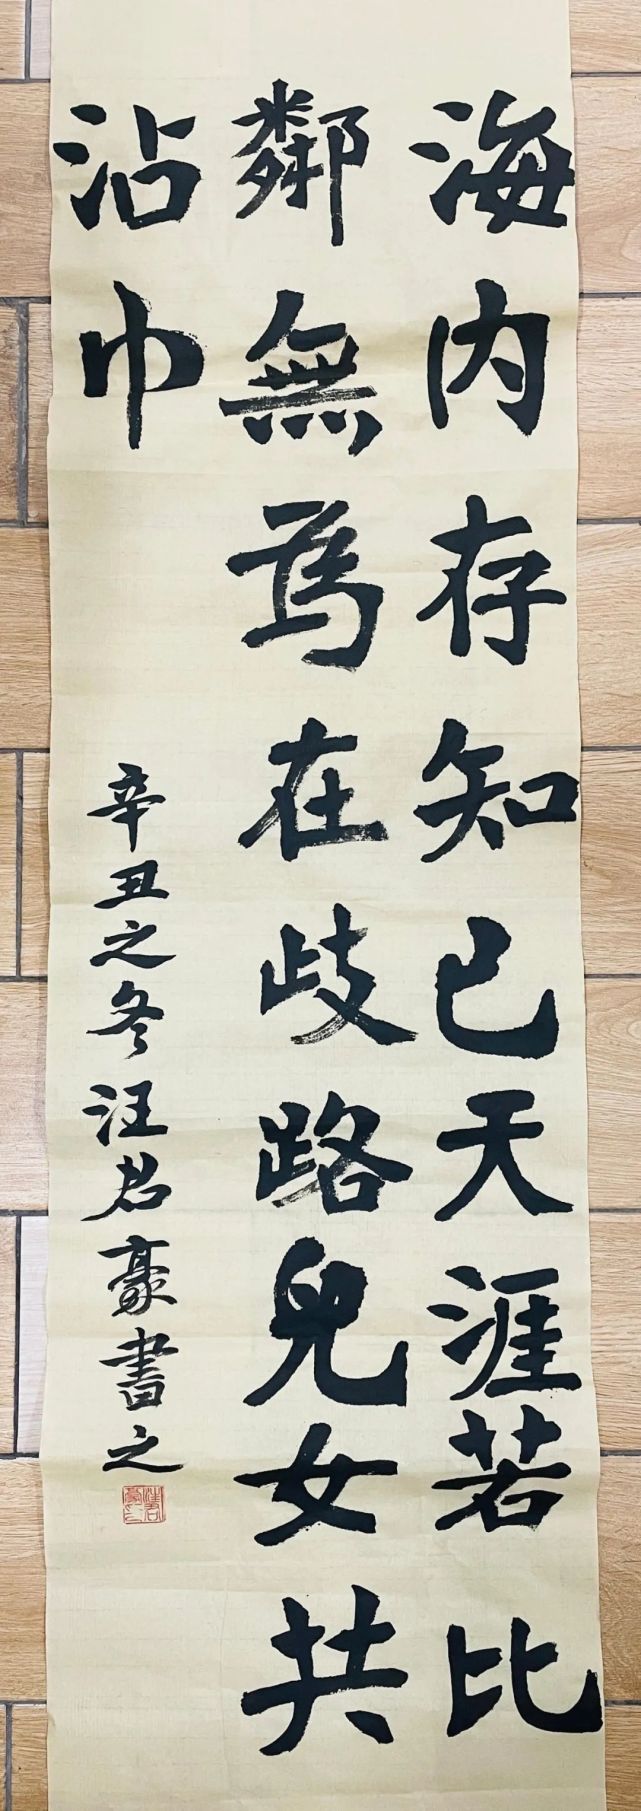 海内存知己天涯若比
鄰無為在歧路兒女共
沾巾
辛丑之冬汪君豪書之